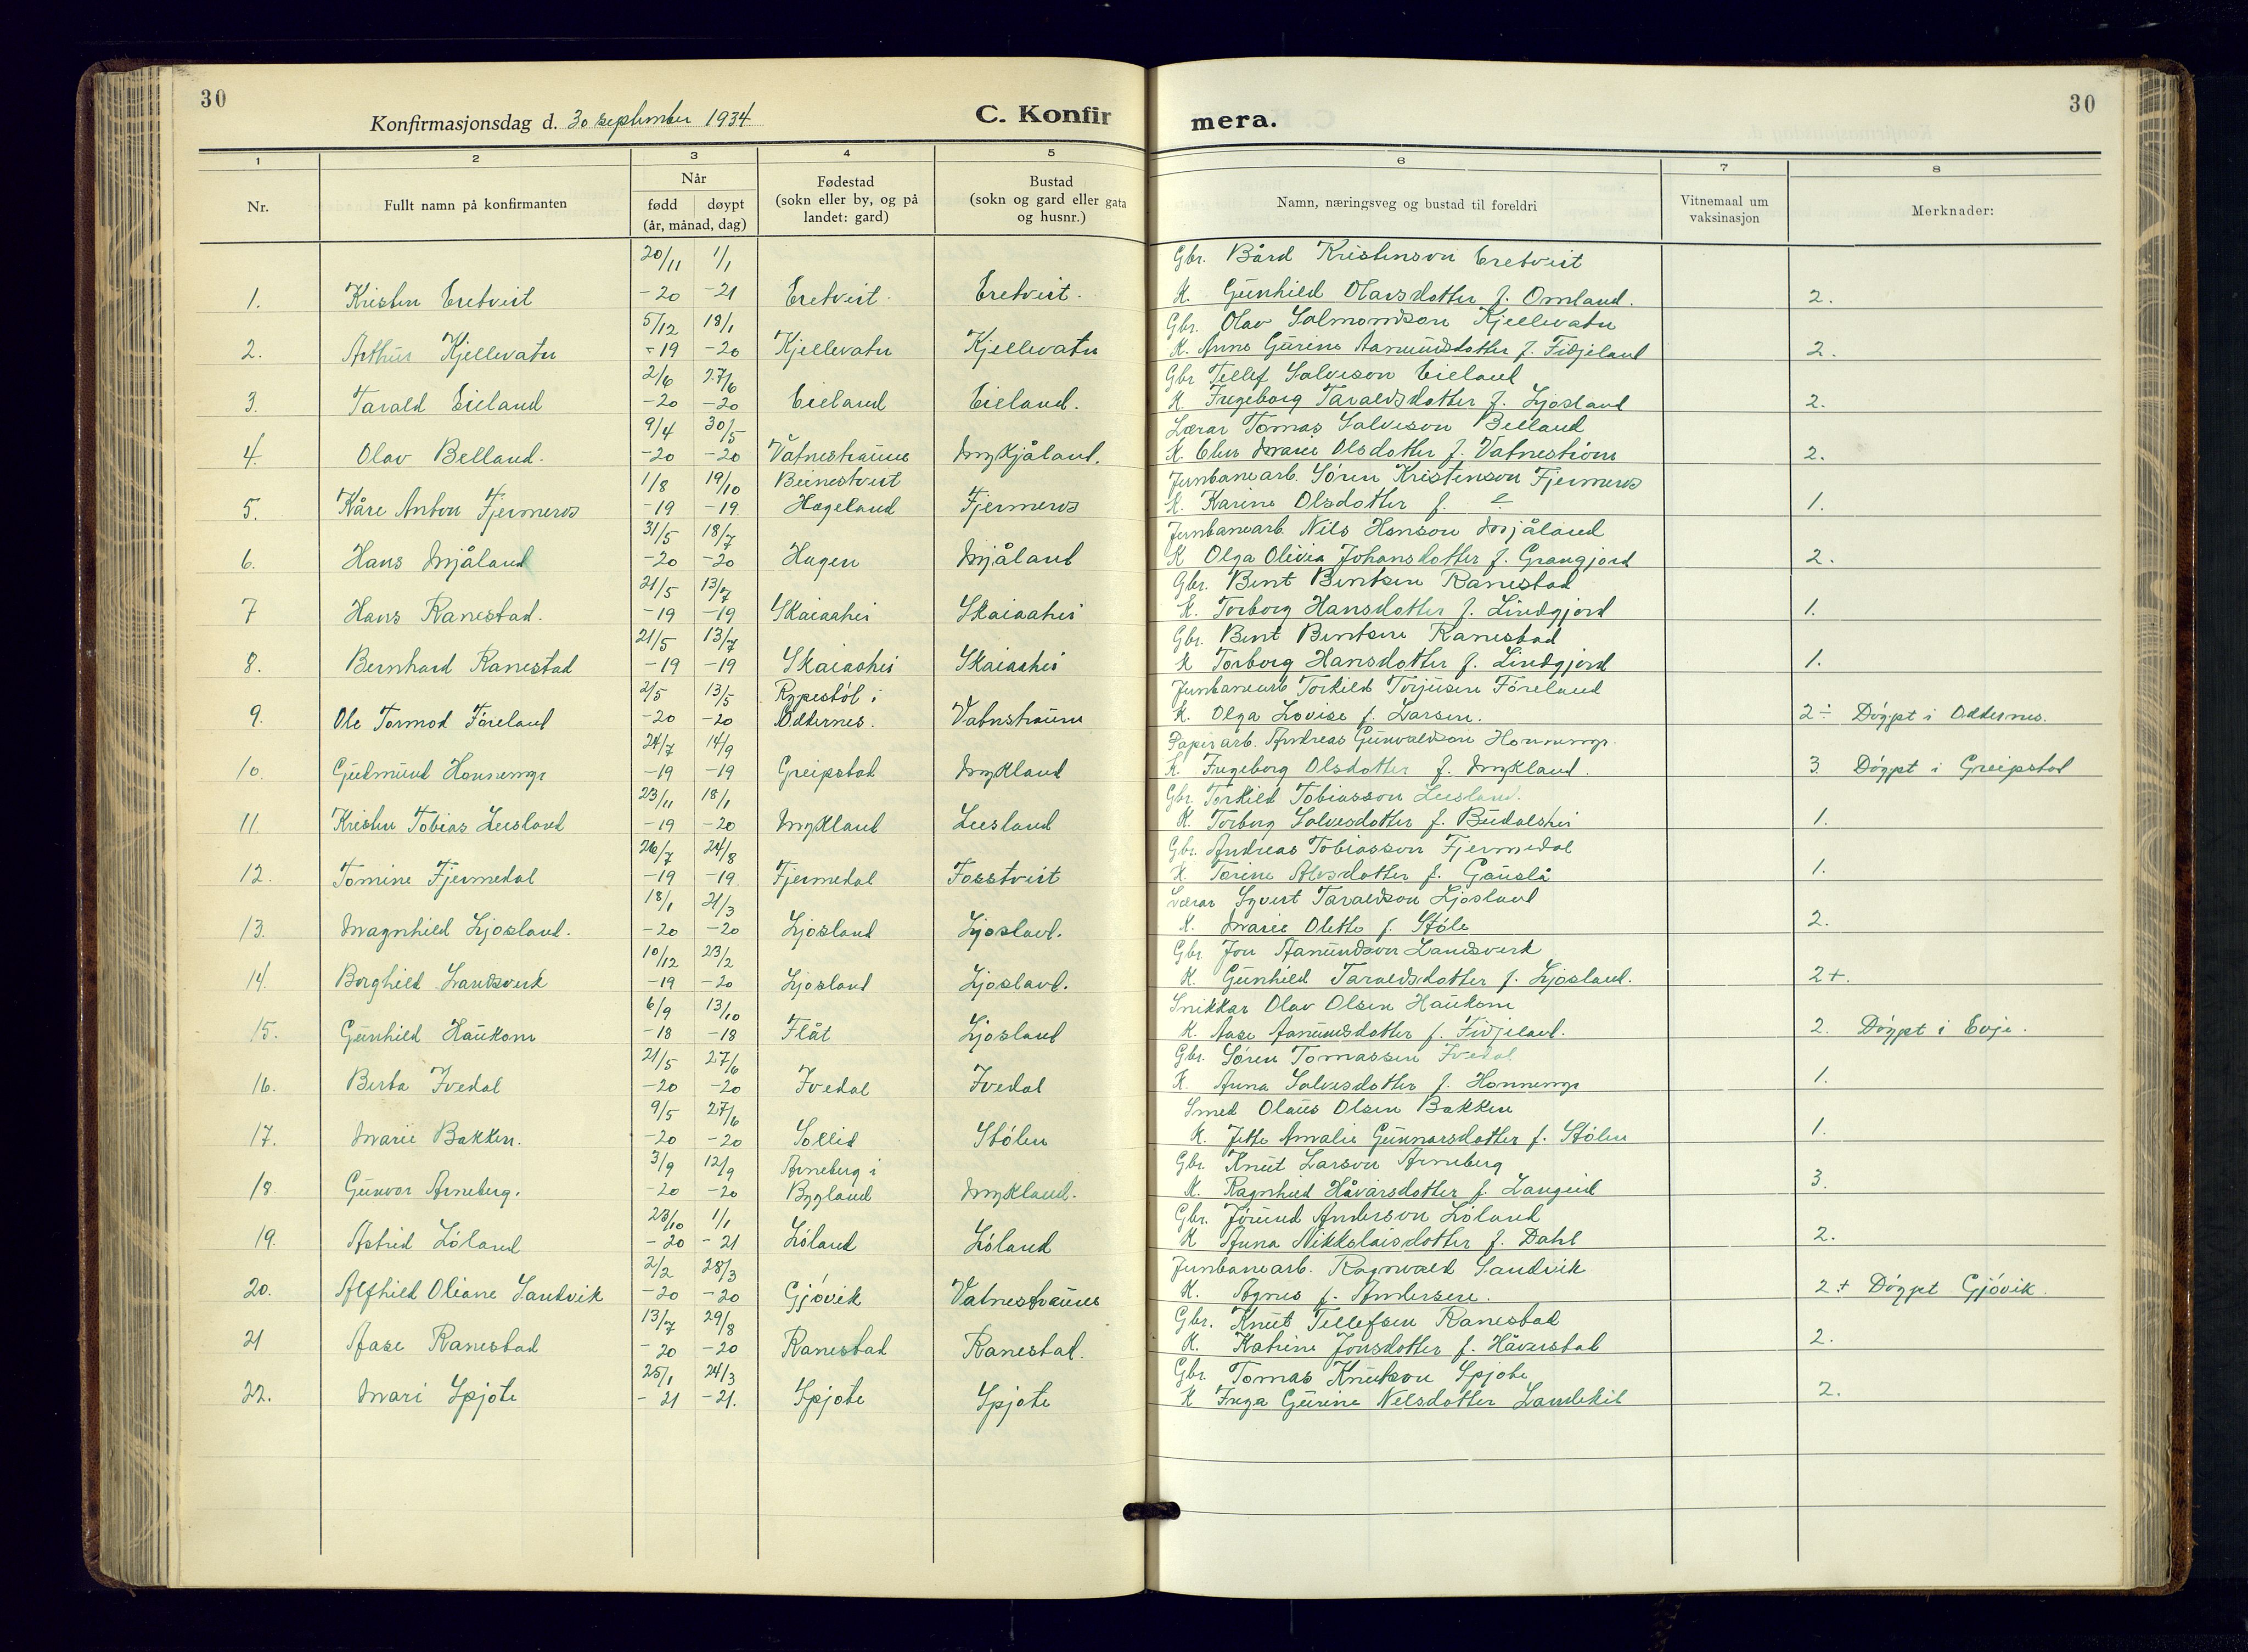 30
Konfirmasjonsdag d. 30 september 1934.
C. Konfir mera.
30
1 2 3 4 5 6 7 8
Nr.
Fullt namn på konfirmanten
Når
fødd døypt
(år, månad, dag)
Fødestad
(sokn eller by, og på
landet: gard)
Bustad
(sokn og gard eller gata
og husnr.)
Namn, næringsveg og bustad til foreldri
Vitnemaal um
vaksinasjon
Merknader:
20/11 1/1 Gbr. Bård Kristenson Eretveit
1. Kristen Eretveit -20 -21 Eretveit. Eretveit. K. Gunhild Olavsdotter f. Omland. 2.
5/12 18/1 Gbr. Olav Salmondson Kjellevatn
2. Arthur Kjellevatn -19 -20 Kjellevatn Kjellevatn K. Anne Gurene Aamundsdotter f. Fidjeland 2.
2/6 27/6 Gbr Tellef Salveson Eieland
3. Tarald Eieland -20 -20 Eieland Eieland. K. Ingeborg Taraldsdotter f. Ljosland 2.
9/4 30/5 Lærar Tomas Salveson Belland
4. Olav Belland. -20 -20 Vatnestraume Mykjåland. K. Marie Olsdotter f. Vatnestrøm 2.
1/8 19/10 Beinestveit Jernbanearb. Søren Kristenson Fjermeros
5. Kåre Anton Fjermeros -19 -19 Hægeland Fjermeros K. Karine Olsdotter f. 1.
31/5 18/7 Jernbanearb. Nils Hanson Mjåland
6. Hans Mjåland -20 -20 Hagen Mjåland K Olga Olivia Johansdotter f. Grangjord 2.
21/5 13/7 Gbr. Bent Bentsen Ranestad
7 Hans Ranestad. -19 -19 Skaiaahei Skaiaahei K. Torborg Hansdotter f. Lindgjord 1.
21/5 13/7 Gbr. Bent Bentsen Ranestad
8. Bernhard Ranestad -19 -19 Skaiaahei Skaiaahei K Torborg Hansdotter f. Lindgjord 1.
2/5 13/5 Rypestøl i Jernbanearb Torkild Torjusen Føreland
9. Ole Tormod Føreland -20 -20 Oddernes. Vatnstraum K. Olga Lovise f. Larsen. 2÷ Døypt i Oddernes.
24/7 14/9 Papirarb. Andreas Gunvaldson Honnemyr.
10. Gudmund Honnemyr -19 -19 Greipstad Mykland K. Ingeborg Olsdotter f. Mykland. 3. Døypt i Greipstad
23/11 18/1 Gbr. Torkild Tobiasson Leesland.
11. Kristen Tobias Leesland -19 -20 Mykland Leesland K. Torborg Salvesdotter f. Budalshei 1.
26/7 24/8 Gbr. Andreas Tobiasson Fjermedal
12. Tomine Fjermedal -19 -19. Fjermedal Fosstveit K. Torine Alvsdotter f. Gauslå 1.
18/1 21/3 Lærar Syvert Taraldson Ljosland
13. Magnhild Ljosland. -20 -20 Ljosland Ljosland. K. Marie Olette f. Støle 2.
10/12 23/2 Gbr. Jon Aamundson Landsverk
14. Borghild Landsverk -19 -20 Ljosland Ljosland. K. Gunhild Taraldsdotter f. Ljosland. 2+.
6/9 13/10 Snikkar Olav Olsen Haukom
15. Gunhild Haukom -18 -18 Flåt Ljosland K. Aase Aamundsdotter f. Fidjeland. 2. Døypt i Evje.
21/5 27/6 Gbr. Søren Tomassen Ivedal
16. Berta Ivedal -20 -20 Ivedal Ivedal K. Anna Salvesdotter f. Honnemyr 1.
9/5 27/6 Smed Olaus Olsen Bakken
17. Marie Bakken. -20 -20 Sollid Stølen K. Jette Amalie Gunnarsdotter f. Stølen 1.
3/9 12/9 Arneberg i Gbr. Knut Larson Arneberg
18. Gunvor Arneberg. -20 -20 Bygland Mykland. K. Ragnhild Håvarsdotter f. Langeid 3.
23/10 1/1 Gbr. Jørund Anderson Løland
19. Astrid Løland -20 -21 Løland Løland K Anna Nikkolaisdotter f. Dahl 2.
2/2 28/3 Jernbanearb. Ragnvald Sandvik
20. Alfhild Oliane Sandvik -20 -20 Gjøvik Vatnestraum K. Agnes f. Andersen. 2+ Døypt Gjøvik.
13/7 29/8 Gbr. Knut Tellefsen Ranestad
21 Aase Ranestad -20 -20 Ranestad Ranestad. K. Katrine Jonsdotter f. Håverstad 2.
25/1 24/3 Gbr. Tomas Knutson Spjote
22. Mari Spjote -21 -21. Spjote Spjote K Inga Gurine Nelsdotter Landekil 2.